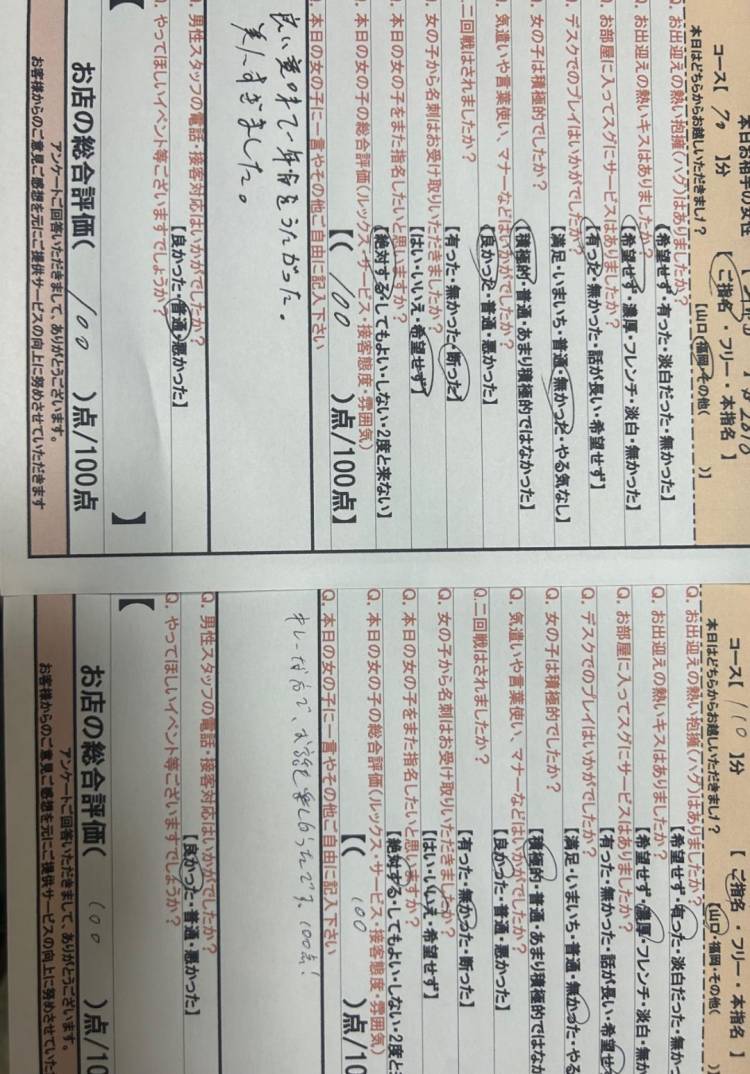 本日お相手の女性【
コース【 70 】分 【 ご指名 ・ フリー ・ 本指名 】
本日はどちらからお越しいただきまし? 【山口・福岡・その他( )】
Q. お出迎えの熱い抱擁(ハグ)はありましたか?
【希望せず・有った・淡白だった・無かった】
Q. お出迎えの熱いキスはありましたか?
【希望せず・濃厚・フレンチ・淡白・無かった】
Q. お部屋に入ってスグにサービスはありましたか?
【有った・無かった・話が長い・希望せず】
Q. デスクでのプレイはいかがでしたか?
【満足・いまいち・普通・無かった・やる気なし】
Q. 女の子は積極的でしたか?
【積極的・普通・あまり積極的ではなかった】
Q. 気遣いや言葉使い、マナーなどはいかがでしたか?
【良かった・普通・悪かった】
二回戦はされましたか?
【有った・無かった・断った】
Q. 女の子から名刺はお受け取りいただきましたか?
【はい・いいえ・希望せず】
Q. 本日の女の子をまた指名したいと思いますか?
【絶対する・してもよい・しない・2度と来ない】
Q. 本日の女の子の総合評価(ルックス・サービス・接客態度・雰囲気)
【( 100 )点/100点】
Q. 本日の女の子に一言やその他ご自由に記入下さい
良い意味で年令をうたがった。
美人すぎました。
Q. 男性スタッフの電話・接客対応はいかがでしたか?
【良かった・普通・悪かった】
Q. やってほしいイベント等ございますでしょうか?
【 】
お店の総合評価( 100 )点/100点
アンケートご回答いただきまして、ありがとうございます。
お客様からのご意見ご感想を元にご提供サービスの向上に努めさせていただきます
コース【 110 】分 【 ご指名 ・ フリー ・ 本指名 】
本日はどちらからお越しいただきまし? 【山口・福岡・その他( )】
Q. お出迎えの熱い抱擁(ハグ)はありましたか?
【希望せず・有った・淡白だった・無かっ
Q. お出迎えの熱いキスはありましたか?
【希望せず・濃厚・フレンチ・淡白・無か
Q. お部屋に入ってスグにサービスはありましたか?
【有った・無かった・話が長い・希望せ
Q. デスクでのプレイはいかがでしたか?
【満足・いまいち・普通・無かった・やる
Q. 女の子は積極的でしたか?
【積極的・普通・あまり積極的ではなか
Q. 気遣いや言葉使い、マナーなどはいかがでしたか?
【良かった・普通・悪かった】
Q. 二回戦はされましたか?
【有った・無かった・断った】
Q. 女の子から名刺はお受け取りいただきましたか?
【はい・いいえ・希望せず】
Q. 本日の女の子をまた指名したいと思いますか?
【絶対する・してもよい・しない・2度と来
Q. 本日の女の子の総合評価(ルックス・サービス・接客態度・雰囲気)
【( 100 )点/10
Q. 本日の女の子に一言やその他ご自由に記入下さい
キレーな方で、お話も楽しかったです。100点!
Q. 男性スタッフの電話・接客対応はいかがでしたか?
【良かった・普通・悪かった】
Q. やってほしいイベント等ございますでしょうか?
【
お店の総合評価( 100 )点/10
アンケートご回答いただきまして、ありがとうございます。
お客様からのご意見ご感想を元にご提供サービスの向上に努めさせていただ